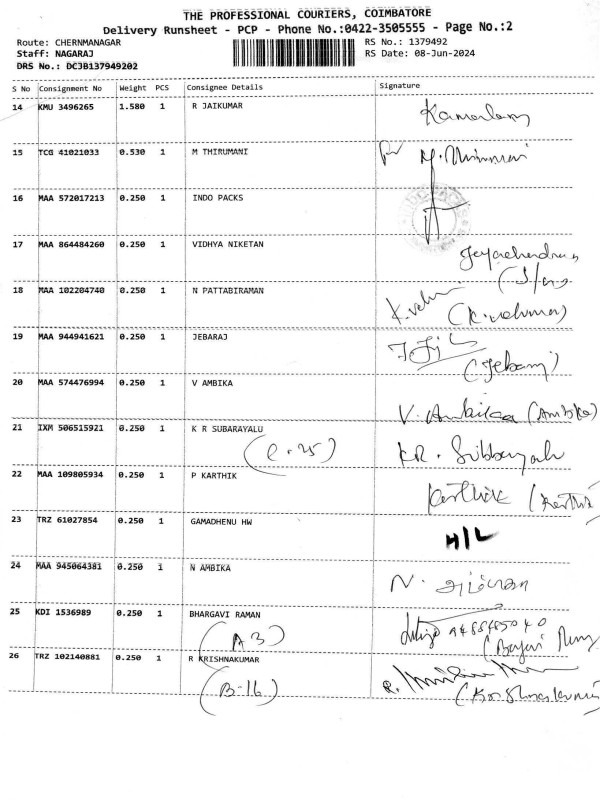 THE PROFESSIONAL COURIERS, COIMBATORE
Delivery Runsheet - PCP - Phone No.:0422-3505555 - Page No.:2
Route: CHERNMANAGAR RS No.: 1379492
Staff: NAGARAJ RS Date: 08-Jun-2024
DRS No.: DCJB137949202
S No Consignment No Weight PCS Consignee Details Signature
14 KMU 3496265 1.580 1 R JAIKUMAR
15 TCG 41021033 0.530 1 M THIRUMANI
16 MAA 572017213 0.250 1 INDO PACKS
17 MAA 864484260 0.250 1 VIDHYA NIKETAN
18 MAA 102204740 0.250 1 N PATTABIRAMAN
19 MAA 944941621 0.250 1 JEBARAJ
20 MAA 574476994 0.250 1 V AMBIKA V. Ambikaa (Ambika)
21 IXM 506515921 0.250 1 K R SUBARAYALU
(C.25)
22 MAA 109805934 0.250 1 P KARTHIK Karthik
23 TRZ 61027854 0.250 1 GAMADHENU HW H/L
24 MAA 945064381 0.250 1 N AMBIKA N.
25 KDI 1536989 0.250 1 BHARGAVI RAMAN
(A3)
26 TRZ 102140881 0.250 1 R KRISHNAKUMAR
(B-16)